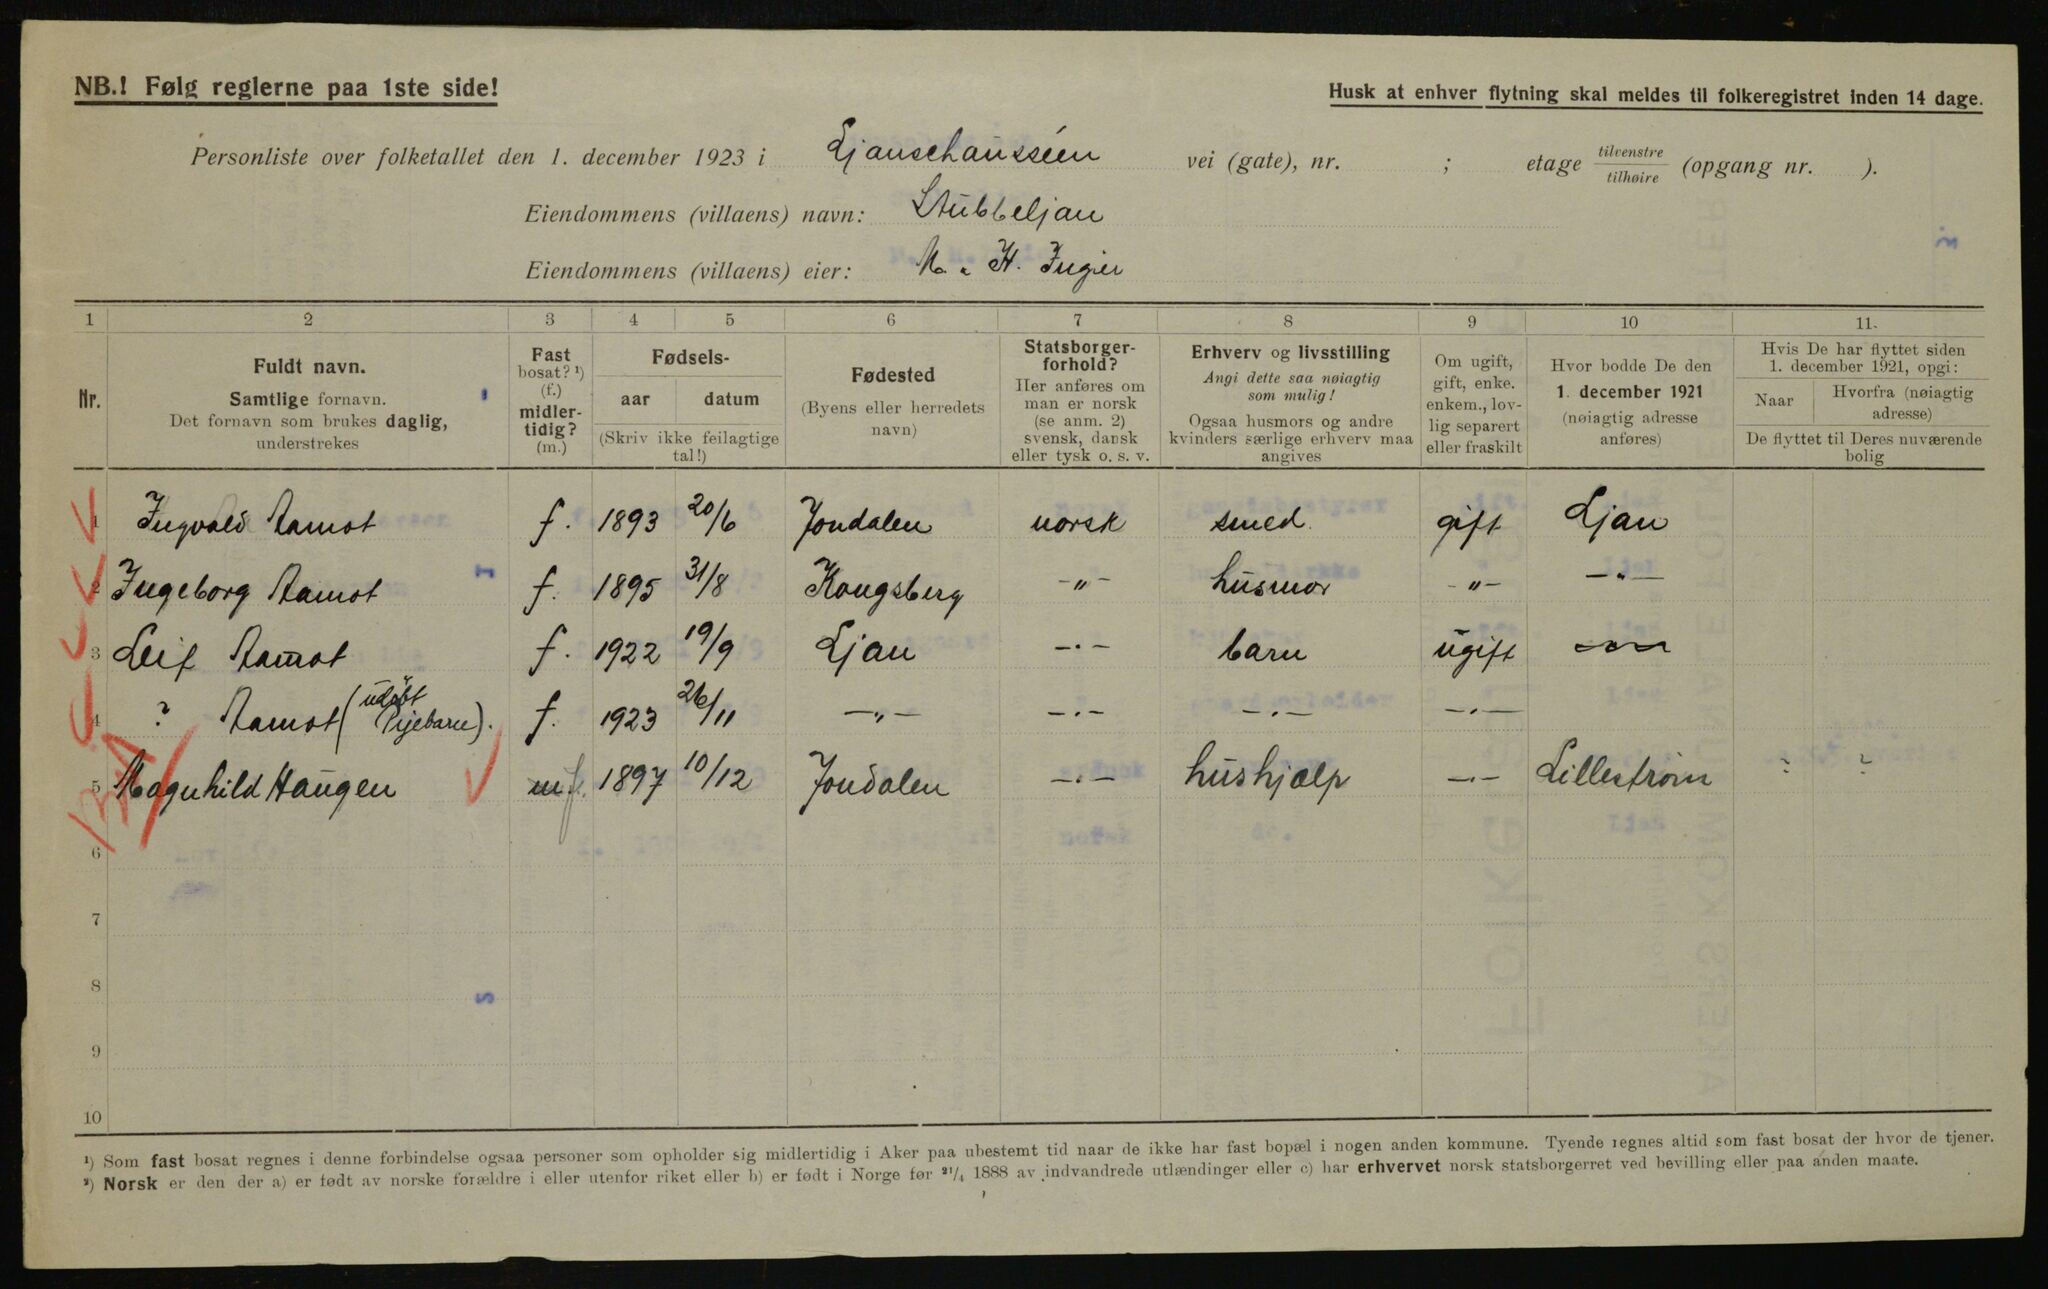 NB.! Følg reglerne paa 1ste side!
Husk at enhver flytning skal meldes til folkeregistret inden 14 dage.
Personliste over folketallet den 1. december 1923 i Ljanschausséen vei (gate), nr. ; etage tilvenstre / tilhøire (opgang nr. ).
Eiendommens (villaens) navn: Stubbeljan
Eiendommens (villaens) eier: M. H. Ingier
1 2 3 4 5 6 7 8 9 10 11.
Nr.
Fuldt navn.
Samtlige fornavn.
Det fornavn som brukes daglig,
understrekes
Fast
bosat? ¹)
(f.)
midler-
tidig?
(m.)
Fødsels-
aar datum
(Skriv ikke feilagtige
tal!)
Fødested
(Byens eller herredets
navn)
Statsborger-
forhold?
Her anføres om
man er norsk
(se anm. 2)
svensk, dansk
eller tysk o. s. v.
Erhverv og livsstilling
Angi dette saa nøiagtig
som mulig!
Ogsaa husmors og andre
kvinders særlige erhverv maa
angives
Om ugift,
gift, enke.
enkem., lov-
lig separert
eller fraskilt
Hvor bodde De den
1. december 1921
(nøiagtig adresse
anføres)
Hvis De har flyttet siden
1. december 1921, opgi:
Naar
Hvorfra (nøiagtig
adresse)
De flyttet til Deres nuværende
bolig
1 Ingvald Aamot f. 1893 20/6 Jondalen norsk smed. gift Ljan
2 Ingeborg Aamot f. 1895 31/8 Kongsberg -„- husmor -„- -„-
3 Leif Aamot f. 1922 19/9 Ljan -„- barn ugift
4 ? Aamot (udøbt Pigebarn). f. 1923 26/11 -„- -„- -„- -„-
5 Magnhild Haugen m f. 1897 10/12 Jondalen -„- hushjælp -„- Lillestrøm ? ?
6
7
8
9
10
¹) Som fast bosat regnes i denne forbindelse ogsaa personer som opholder sig midlertidig i Aker paa ubestemt tid naar de ikke har fast bopæl i nogen anden kommune. Tyende regnes altid som fast bosat der hvor de tjener.
²) Norsk er den der a) er født av norske forældre i eller utenfor riket eller b) er født i Norge før 21/4 1888 av indvandrede utlændinger eller c) har erhvervet norsk statsborgerret ved bevilling eller paa anden maate.